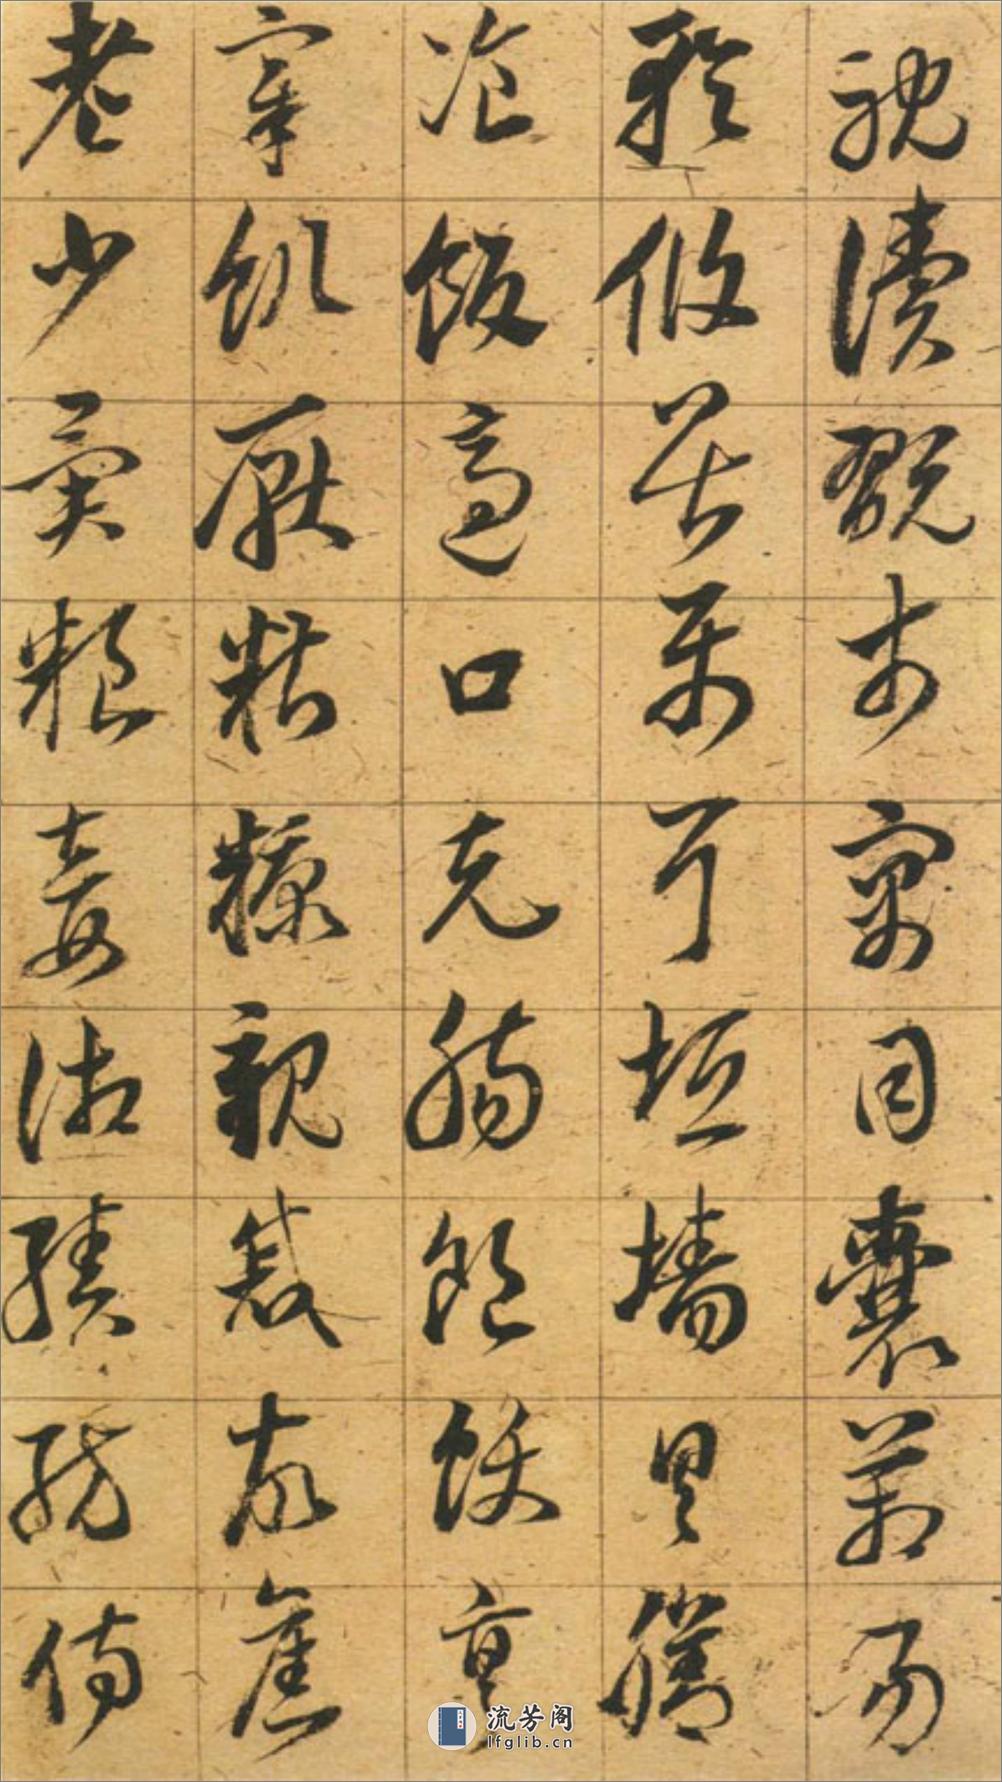 耽读玩市寓目囊箱易
輶攸畏属耳垣墙具膳
飡饭适口充肠饱饫烹
宰饥厌糟糠亲戚故旧
老少异粮妾御绩纺侍
流芳阁
lfglib.cn